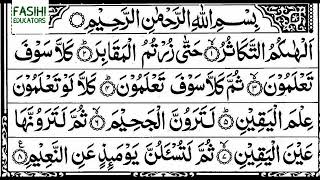 FASIHI
EDUCATORS
بِسْمِ اللّٰهِ الرَّحْمٰنِ الرَّحِيْمِ
اَلْهٰىكُمُ التَّكَاثُرُ ۙ﴿۱﴾ حَتّٰى زُرْتُمُ الْمَقَابِرَ ؕ﴿۲﴾ كَلَّا سَوْفَ
تَعْلَمُوْنَ ۙ﴿۳﴾ ثُمَّ كَلَّا سَوْفَ تَعْلَمُوْنَ ؕ﴿۴﴾ كَلَّا لَوْ تَعْلَمُوْنَ
عِلْمَ الْيَقِيْنِ ؕ﴿۵﴾ لَتَرَوُنَّ الْجَحِيْمَ ۙ﴿۶﴾ ثُمَّ لَتَرَوُنَّهَا
عَيْنَ الْيَقِيْنِ ۙ﴿۷﴾ ثُمَّ لَتُسْـَٔلُنَّ يَوْمَىِٕذٍ عَنِ النَّعِيْمِ ﴿۸﴾